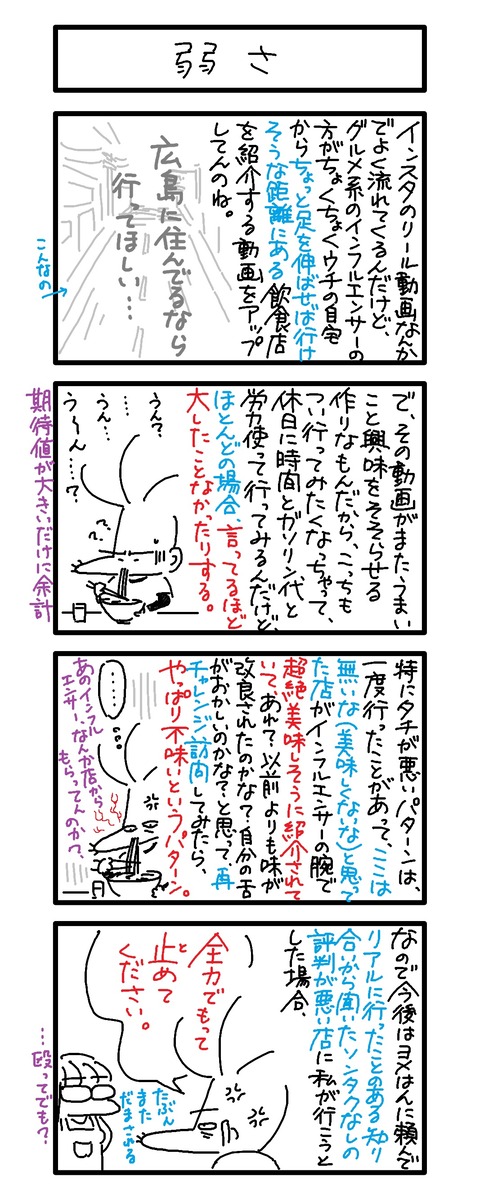 弱さ
インスタのリール動画なんか
でよく流れてくるんだけど、
グルメ系のインフルエンサーの
方がちょくちょくウチの自宅
からちょっと足を伸ばせば行け
そうな距離にある飲食店
を紹介する動画をアップ
してんのね。
広島に住んでるなら
行ってほしい…
こんなの
で、その動画がまた、うまい
こと興味をそそらせる
作りなもんだから、こっちも
つい行ってみたくなっちゃって、
休日に時間とガソリン代と
労力使って行ってみるんだけど、
ほとんどの場合、言ってるほど
大したことなかったりする。
うん?
……
うん…
う〜ん…?
期待値が大きいだけに余計
特にタチが悪いパターンは、
一度行ったことがあって、ここは
無いな(美味しくないな)と思って
た店がインフルエンサーの腕で
超絶美味しそうに紹介されて
いて、あれ?以前よりも味が
改良されたのかな?自分の舌
がおかしいのかな?と思って、再
チャレンジ訪問してみたら、
やっぱり不味いというパターン。
……
あのインフル
エンサー、なんか店から
もらってんのか?
なので今後はヨメはんに頼んで
リアルに行ったことのある知り
合いから聞いたソンタクなしの
評判が悪い店に私が行こうと
した場合、
全力でもって
と
止めて
ください。
たぶん
また
だまされる
…殴ってでも?